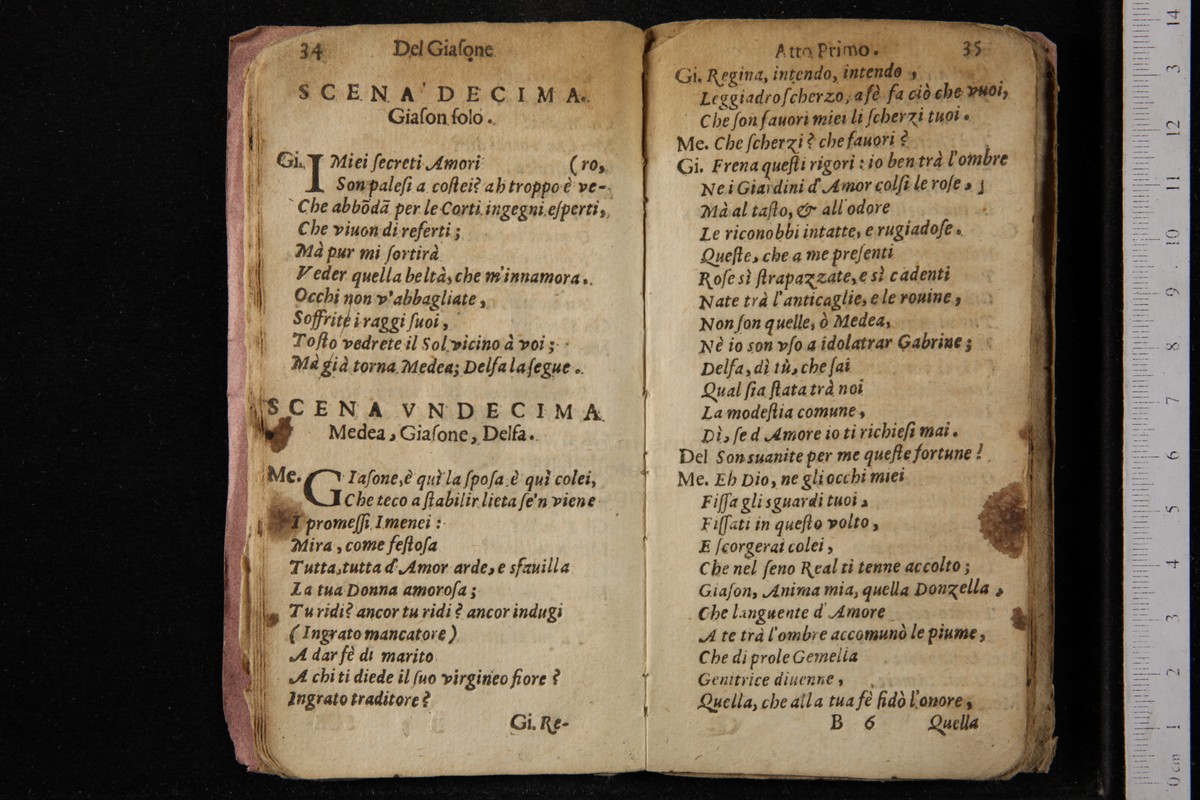 34 Del Giaſone
SCENA DECIMA.
Giaſon ſolo.
Gi. I Miei ſecreti Amori (ro,
Son paleſi a coſtei? ah troppo è ve-
Che abbōdā per le Corti ingegni eſperti,
Che viuon di referti;
Mà pur mi ſortirà
Veder quella beltà, che m'innamora.
Occhi non v'abbagliate,
Soffrite i raggi ſuoi,
Toſto vedrete il Sol vicino à voi;
Mà già torna Medea; Delfa la ſegue.
SCENA VNDECIMA
Medea, Giaſone, Delfa.
Me. GIaſone, è quì la ſpoſa è quì colei,
Che teco a ſtabilir lieta ſe'n viene
I promeſſi Imenei:
Mira, come feſtoſa
Tutta, tutta d'Amor arde, e sfauilla
La tua Donna amoroſa;
Tu ridi? ancor tu ridi? ancor indugi
(Ingrato mancatore)
A dar fè di marito
A chi ti diede il ſuo virgineo fiore?
Ingrato traditore?
Gi. Re-
Atto Primo. 35
Gi. Regina, intendo, intendo,
Leggiadro ſcherzo, afè fa ciò che vuoi,
Che ſon fauori miei li ſcherzi tuoi.
Me. Che ſcherzi? che fauori?
Gi. Frena queſti rigori: io ben trà l'ombre
Ne i Giardini d'Amor colſi le roſe,
Mà al taſto, & all'odore
Le riconobbi intatte, e rugiadoſe.
Queſte, che a me preſenti
Roſe sì ſtrapazzate, e sì cadenti
Nate trà l'anticaglie, e le rouine,
Non ſon quelle, ò Medea,
Nè io son vſo a idolatrar Gabrine;
Delfa, dì tù, che ſai
Qual ſia ſtata trà noi
La modeſtia comune,
Dì, ſe d Amore io ti richieſi mai.
Del Son suanite per me queſte fortune!
Me. Eh Dio, ne gli occhi miei
Fiſſa gli sguardi tuoi,
Fiſſati in queſto volto,
E ſcorgerai colei,
Che nel ſeno Real ti tenne accolto;
Giaſon, Anima mia, quella Donzella,
Che languente d'Amore
A te trà l'ombre accomunò le piume,
Che di prole Gemella
Genitrice diuenne,
Quella, che alla tua fè fidò l'onore,
B 6 Quella